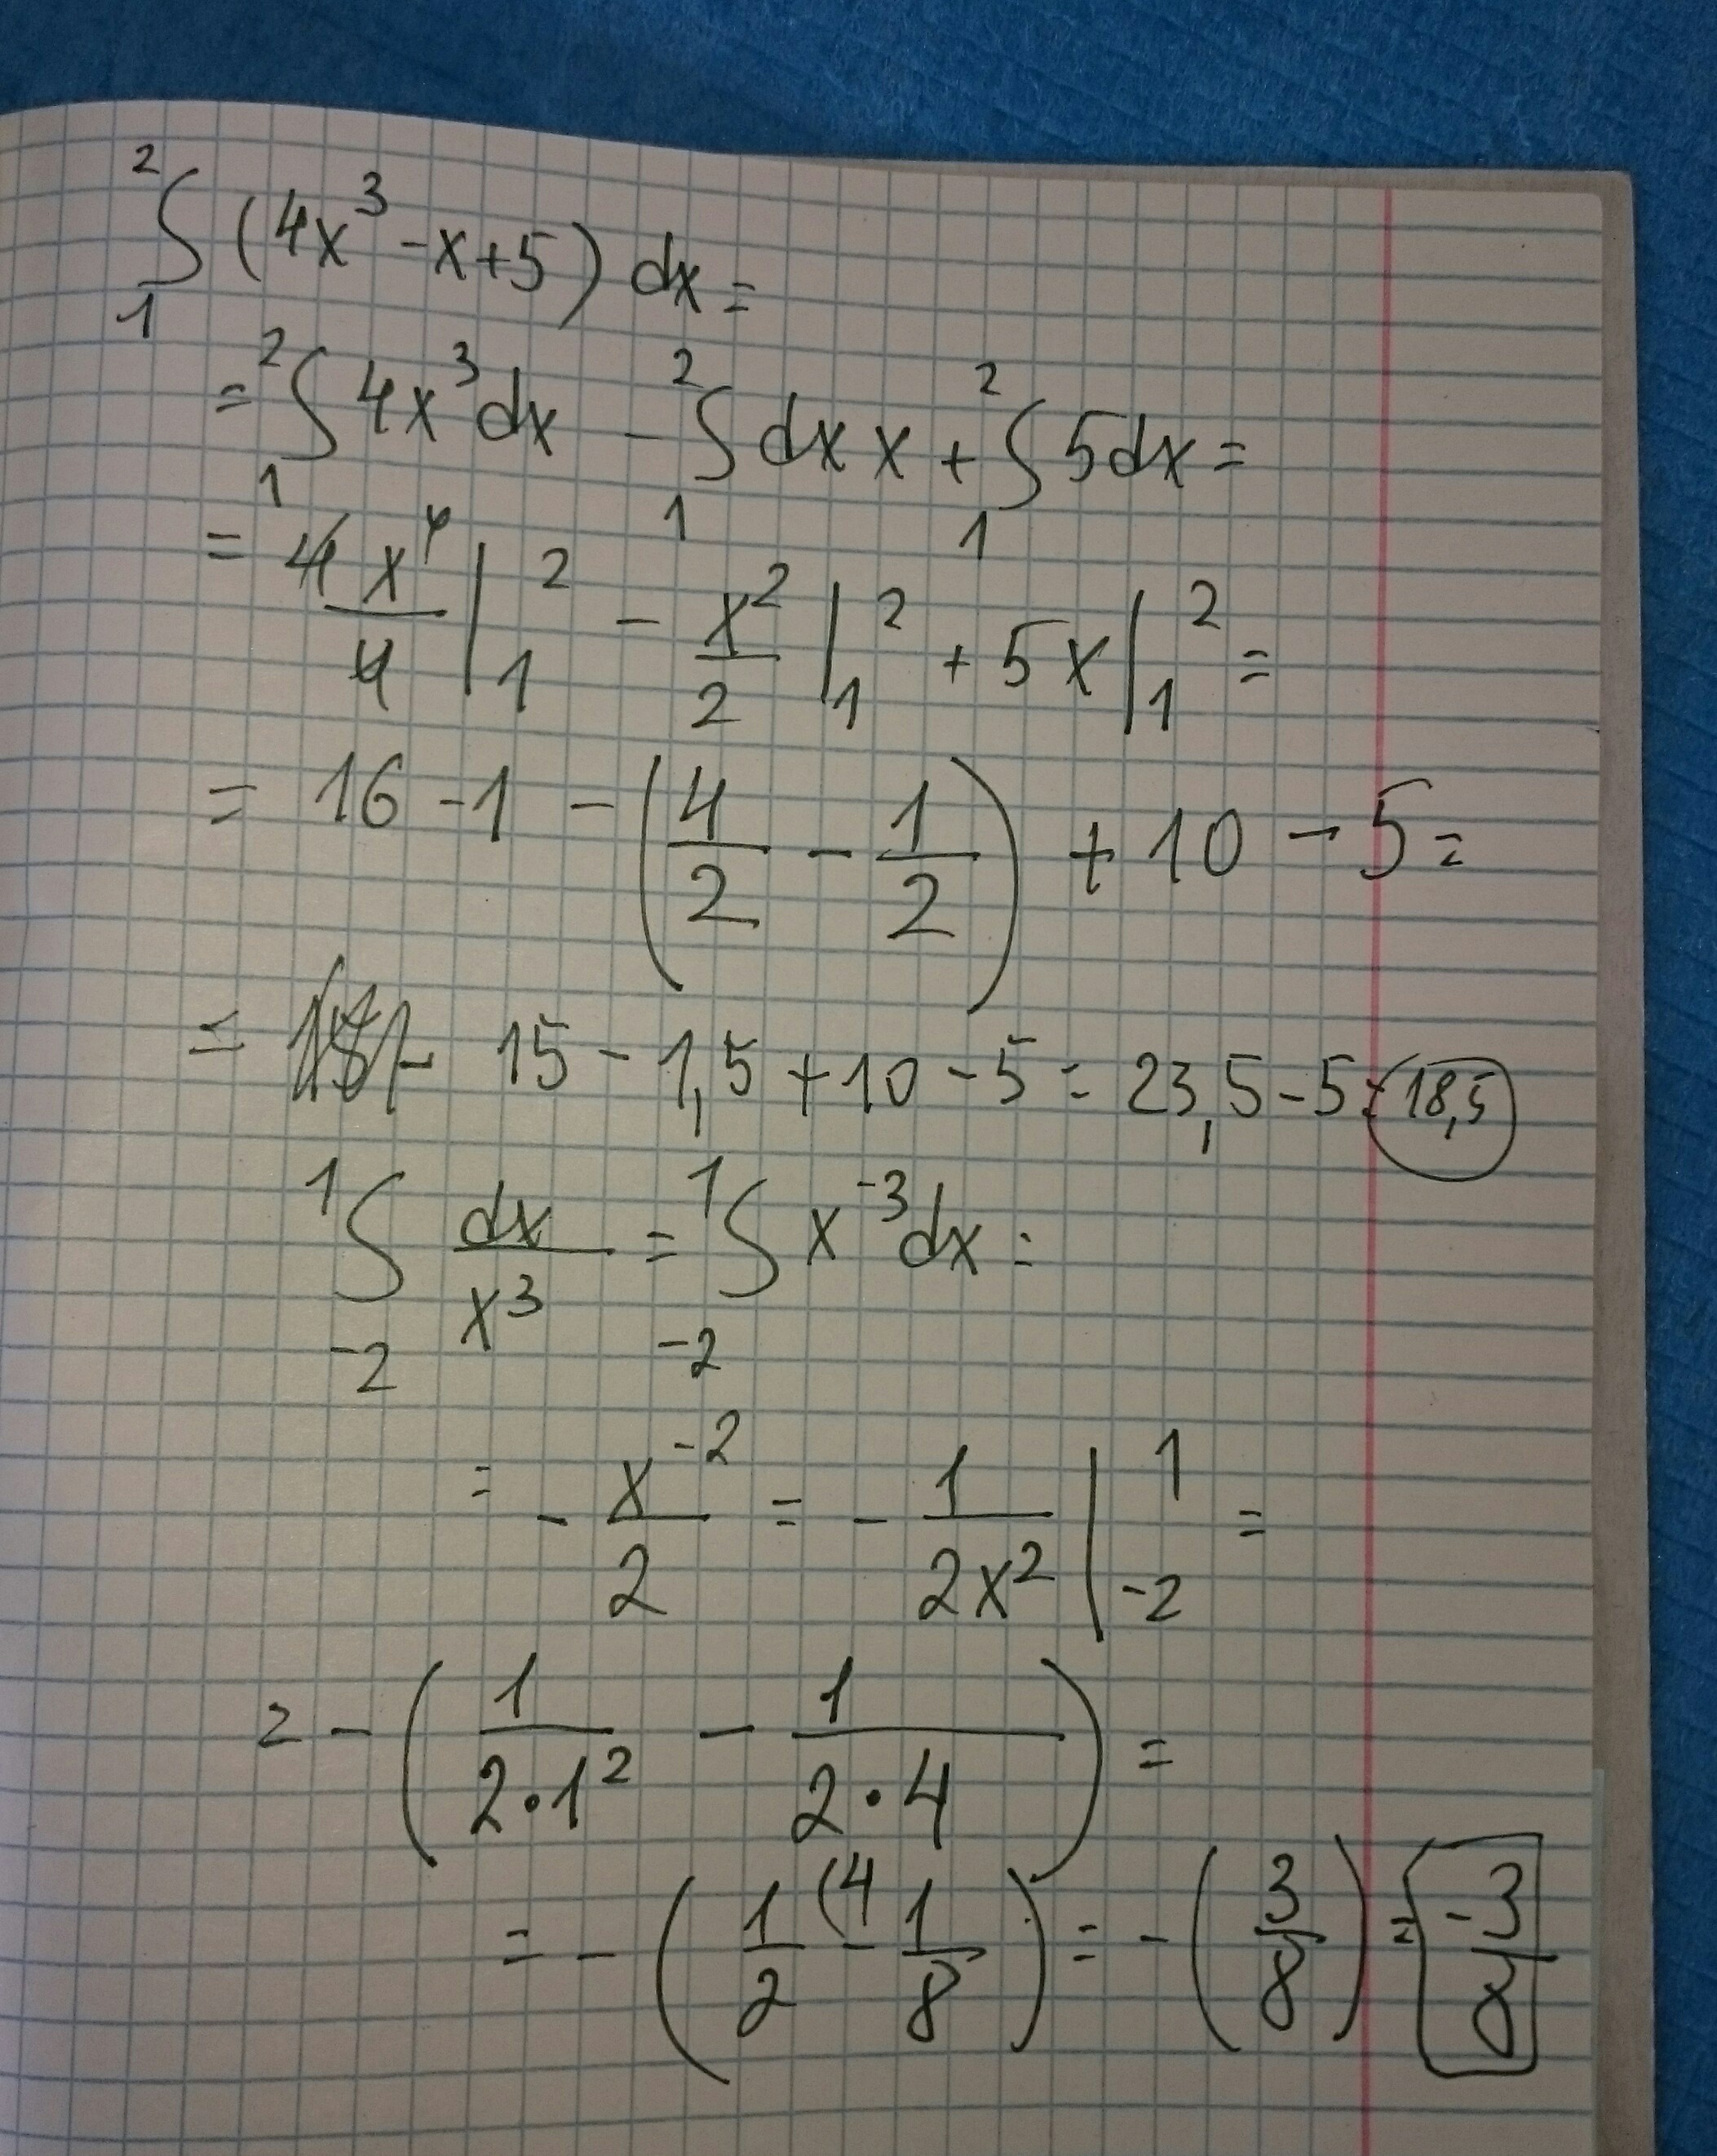 ₁²∫ (4x³ - x + 5) dx =
= ₁²∫ 4x³ dx - ₁²∫ dx x + ₁²∫ 5dx =
= 4x⁴/4 |₁² - x²/2 |₁² + 5x |₁² =
= 16 - 1 - (4/2 - 1/2) + 10 - 5 =
= 15 - 1,5 + 10 - 5 = 23,5 - 5 = 18,5
₋₂¹∫ dx/x³ = ₋₂¹∫ x⁻³ dx =
= - x⁻²/2 = - 1/2x² |₋₂¹ =
= - (1/2·1² - 1/2·4) =
= - (1/2 (4 - 1/8) = - (3/8) = -3/8